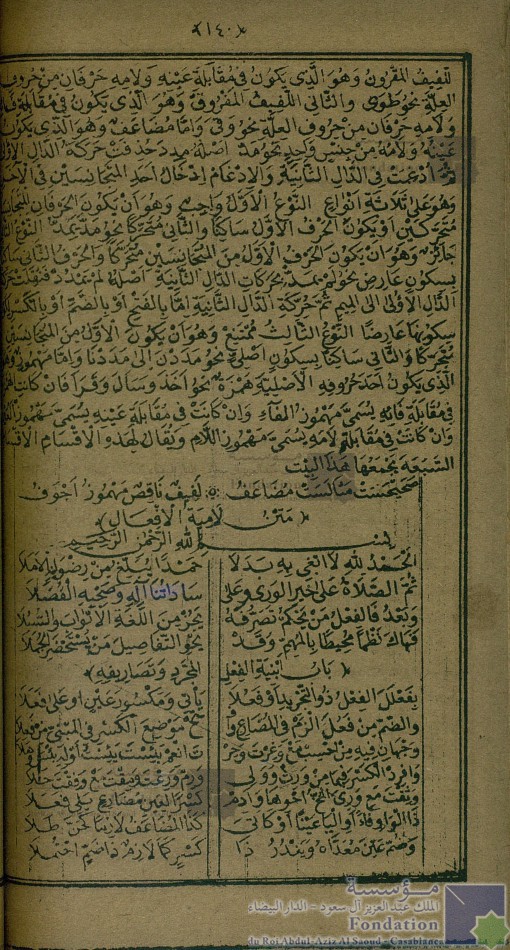 ١٤٠
للفيف المقرون وهو الذي يكون في مقابلة عينه ولامه حرفان من حروف
العلة نحو طوى والثاني اللفيف المفروق وهو الذي يكون في مقابلة
ولامه حرفان من حروف العلة نحو وقى واما مضاعف وهو الذي يكون
عينه ولامه من جنس واحد نحو مد اصله مدد حذفت حركة الدال الاولى
ثم ادغمت في الدال الثانية والادغام ادخال احد المتجانسين في الآخر
وهو على ثلاثة انواع النوع الاول واجب وهو ان يكون الحرفان المتجانسان
متحركين او يكون الحرف الاول ساكنا والثاني متحركا نحو مد يمد النوع الثاني
جائز وهو ان يكون الحرف الاول من المتجانسين متحركا والحرف الثاني ساكنا
بسكون عارض نحو لم يمد بحركات الدال الثانية اصله لم يمدد فنقلت حركة
الدال الاولى الى الميم ثم حركة الدال الثانية اما بالفتح او بالضم او بالكسر
سكونها عارضا النوع الثالث ممتنع وهو ان يكون الاول من المتجانسين
متحركا والثاني ساكنا بسكون اصلي نحو مددن الى مددنا واما مهموز وهو
الذي يكون احد حروفه الاصلية همزة نحو اخذ وسأل وقرأ فان كانت
في مقابلة فائه يسمى مهموز الفاء وان كانت في مقابلة عينه يسمى مهموز
وان كانت في مقابلة لامه يسمى مهموز اللام ويقال لهذه الاقسام الاقسام
السبعة يجمعها هذا البيت
صحيحست مثالست مضاعف لفيف ناقص مهموز اجوف
متن لامية الافعال
بسم الله الرحمن الرحيم
الحمد لله لا ابغي به بدلا حمدا يبلغ من رضوانه الاملا
ثم الصلاة على خير الورى وعلى ساداتنا آله وصحبه الفضلا
وبعد فالفعل من يحكم تصرفه يحز من اللغة الابواب والسبلا
فهاك نظما محيطا بالمهم وقد يحوي التفاصيل من يستحضر الجملا
باب ابنية الفعل المجرد وتصاريفه
بفعلل الفعل ذو التجريد او فعلا يأتي ومكسور عين او على فعلا
والضم من فعل الزم في المضارع و افتح موضع الكسر في المبني من فعلا
وجهان فيه من احسب مع وغرت وحر ت انعم بئست يئست اوله يبس وهلا
وافرد الكسر فيما من ورث وولي ورم ورعت ومقت مع وفقت حلا
وثقت مع وري المخ احوها وادم كسرا لعين مضارع يلي فعلا
ذا الواو فاء او اليا عينا او كاتى كذا المضاعف لازما كحن طلا
وضم عين معداه ويندر ذا كسر كما لازم ذا ضم احتملا
مؤسسة
الملك عبد العزيز آل سعود - الدار البيضاء
Fondation
du Roi Abdul-Aziz Al Saoud - Casablanca